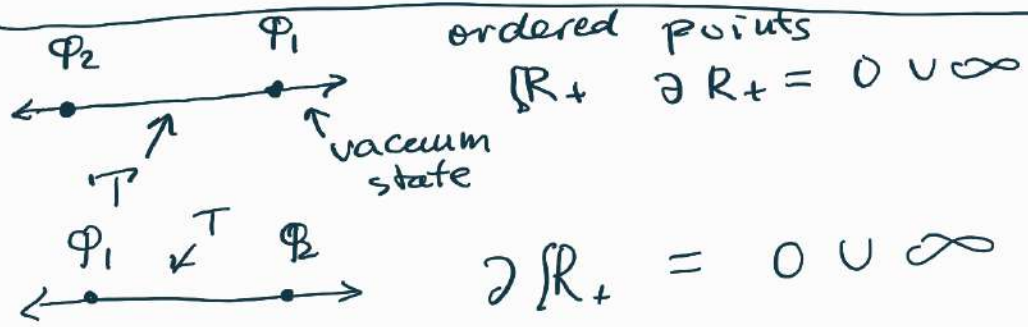 φ₂ φ₁ ordered points
ℝ₊ ∂ R₊ = 0 ∪ ∞
vacuum
T state
φ₁ T φ₂
∂ ℝ₊ = 0 ∪ ∞